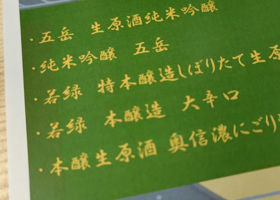 ・五岳 生原酒純米吟醸
・純米吟醸 五岳
・若緑 特本醸造しぼりたて生原
・若緑 本醸造 大辛口
・本醸生原酒 奥信濃にごり